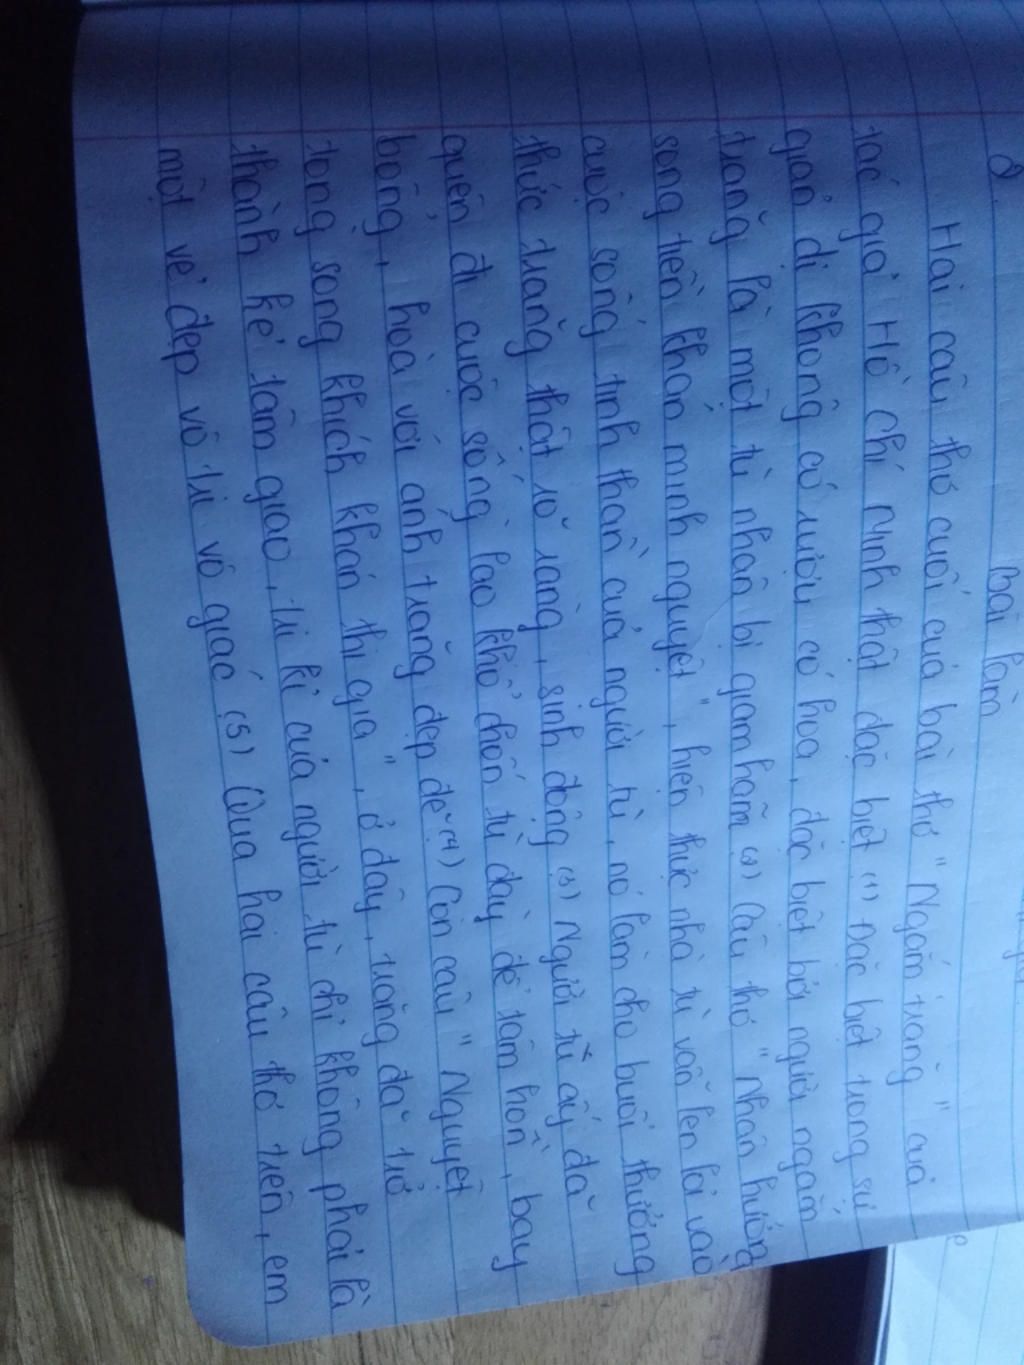 Bài làm
Hai câu thơ cuối của bài thơ "Ngắm trăng" của
tác giả Hồ Chí Minh thật đặc biệt (1) Đặc biệt trong sự
giản dị không có rượu có hoa, đặc biệt bởi người ngắm
trăng là một tù nhân bị giam hãm (2) Câu thơ "Nhân hướng
song tiền khán minh nguyệt", hiện thực nhà tù vẫn len lỏi vào
cuộc sống tinh thần của người tù, nó làm cho buổi thưởng
thức trăng thật rõ ràng, sinh động (3) Người tù ấy đã
quên đi cuộc sống lao khổ chốn tù đày để tâm hồn, bay
bổng, hoà với ánh trăng đẹp đẽ. (4) Còn câu "Nguyệt
tòng song khích khán thi gia", ở đây, trăng đã trở
thành kẻ tâm giao, tri kỉ của người tù chứ không phải là
một vẻ đẹp vô tri vô giác (5) Qua hai câu thơ trên, em